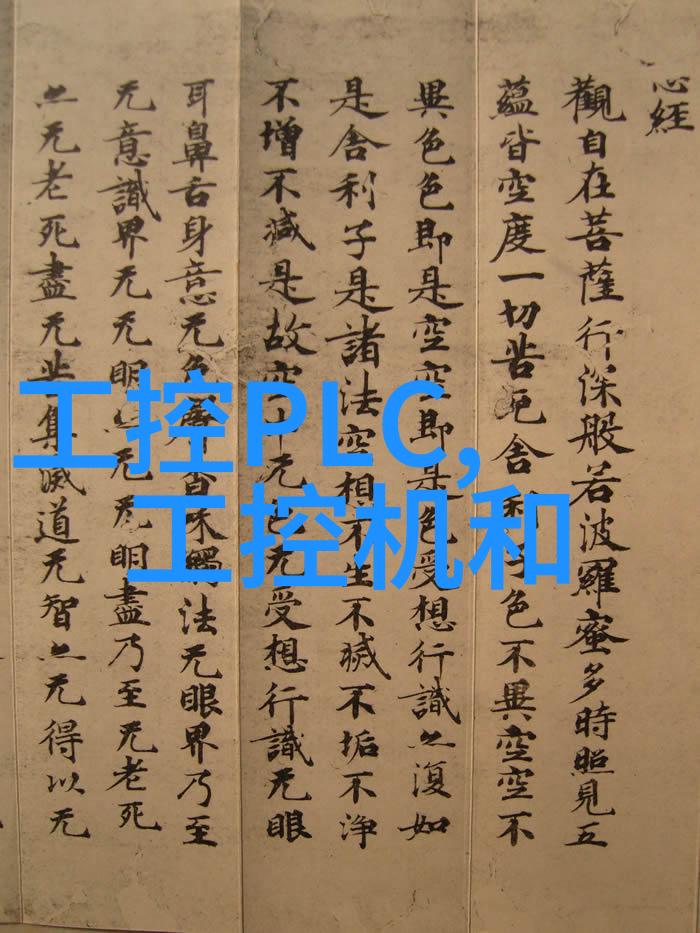 心経
觀自在菩薩行深般若波羅蜜多時照見五
蘊皆空度一切苦厄舍利子色不異空空不
異色色即是空空即是色受想行識亦復如
是舍利子是諸法空想不生不滅不垢不浄
不增不減是故空中无色无受想行識无眼
耳鼻舌身意无色聲香味觸法无眼界乃至
无意識界无无明亦无无明盡乃至无老死
亦无老死盡无苦集滅道无智亦无得以无
工控PLC,
工控机和